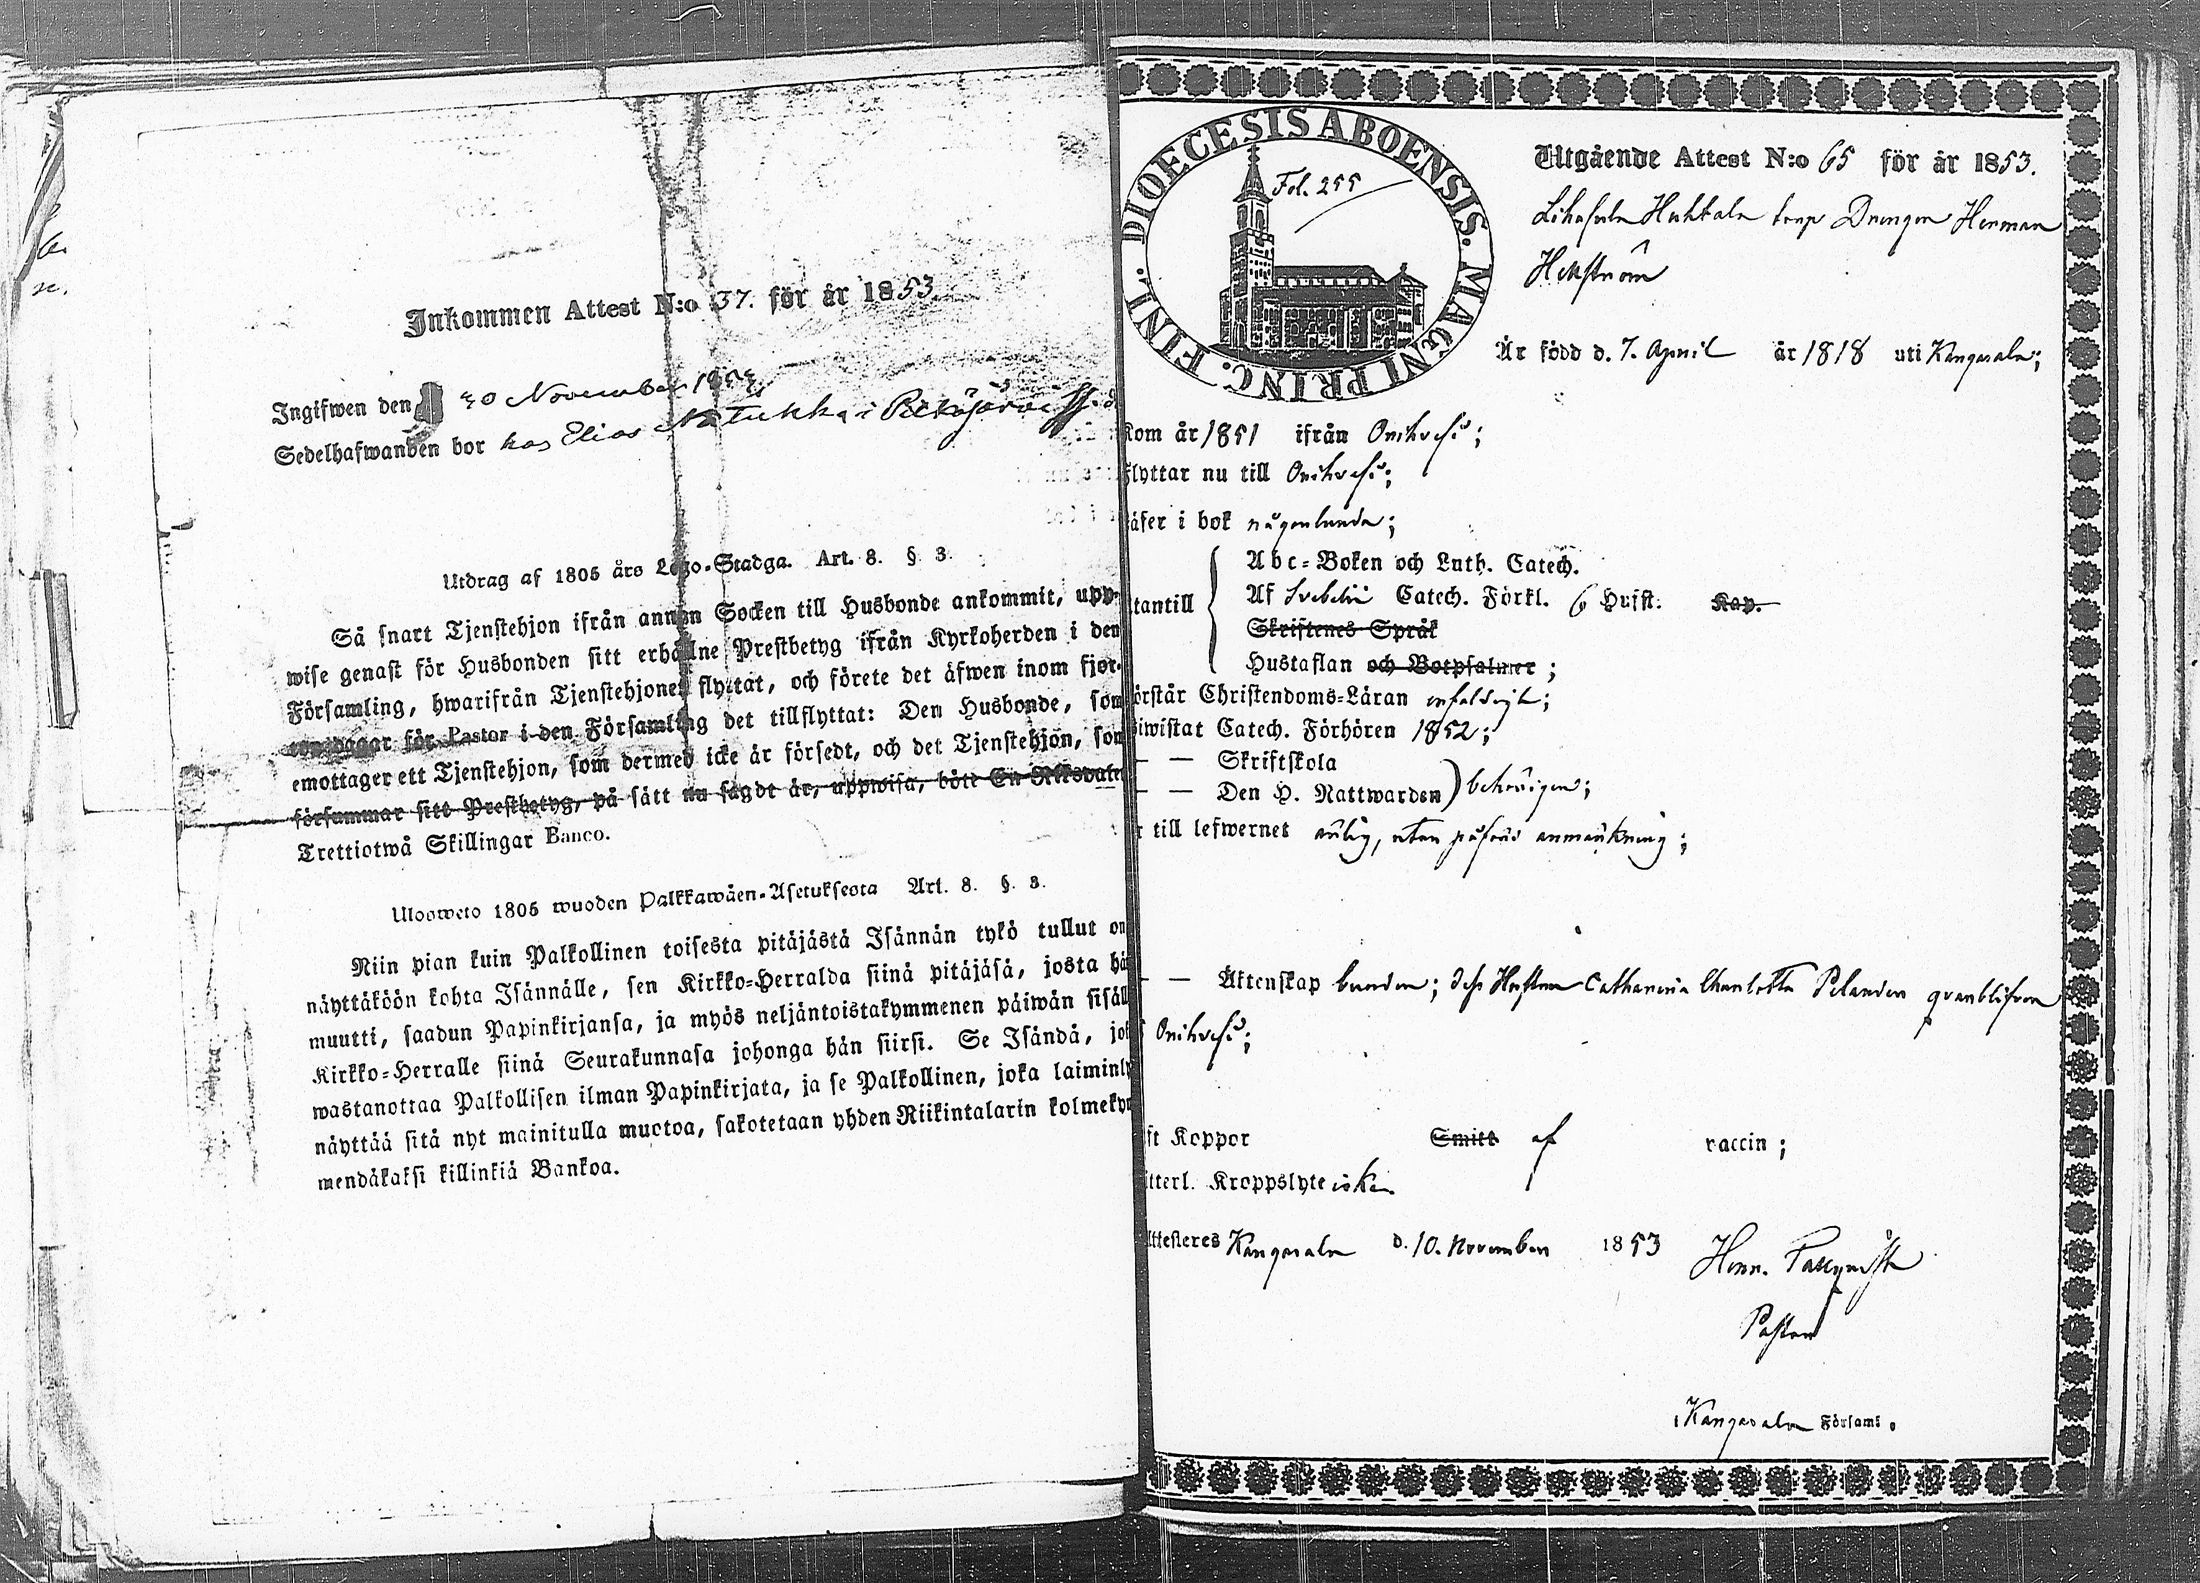 Inkommen Attest N:o 37. för år 1853.
Ingifwen den 30 November 1853
Sedelhafwanden bor hos Elias
Utdrag af 1805 års Lego-Stadga. Art. 8. § 3.
Så snart Tjenstehjon ifrån annan Socken till Husbonde ankommit, upp-
wise genast för Husbonden sitt erhållne Prestbetyg ifrån Kyrkoherden i den
Församling, hwarifrån Tjenstehjonet flyttat, och förete det äfwen inom fjor-
ton dagar för Pastor i den Församling det tillflyttat: Den Husbonde, som
emottager ett Tjenstehjon, som dermed icke är försedt, och det Tjenstehjon, som
försummar sitt Prestbetyg, på sätt nu sagdt är, uppwisa, böte En Riksdaler
Trettiotwå Skillingar Banco.
Ulosweto 1805 wuoden Palkkawäen-Asetuksesta Art. 8. §. 3.
Niin pian kuin Palkollinen toisesta pitäjästä Isännän tykö tullut on
näyttäköön kohta Isännälle, sen Kirkko-Herralda siinä pitäjäsä, josta hän
muutti, saadun Papinkirjansa, ja myös neljäntoistakymmenen päiwän sisäll
Kirkko-Herralle siinä Seurakunnasa johonga hän siirsi. Se Isändä, jok
wastanottaa Palkollisen ilman Papinkirjata, ja se Palkollinen, joka laiminly
näyttää sitä nyt mainitulla muotoa, sakotetaan yhden Riikintalarin kolmeky
mendäkaksi killinkiä Bankoa.
DIOECESIS ABOENSIS. MAGNI PRINC. FINL.
Fol. 255
Utgående Attest N:o 65 för år 1853.
Huhtala Drengen Herman
Hekström
Är född d. 7. April år 1818 uti Kangasala;
Kom år 1851 ifrån Orihvesi;
Flyttar nu till Orihvesi;
äser i bok någonlunda;
Abc-Boken och Luth. Catech.
tantill Af Svebelii Catech. Förkl. 6 Hufst. Kap.
Skriftenes Språk
Hustaflan och Botpsalmer;
örstår Christendoms-Läran enfaldigt;
iwistat Catech. Förhören 1852;
— — Skriftskola
— — Den H. Nattwarden behörigen;
r till lefwernet ärlig, utan påförd anmärkning;
— — Äktenskap bunden; dess Hustru Catharina Charlotta Pelander qvarblifven
i Orihvesi;
ft Koppor Smitt af vaccin;
tterl. Kroppslyte icke.
Attesteres Kangasala d. 10. November 1853
Henr.
Pastor
i Kangasala Församl.